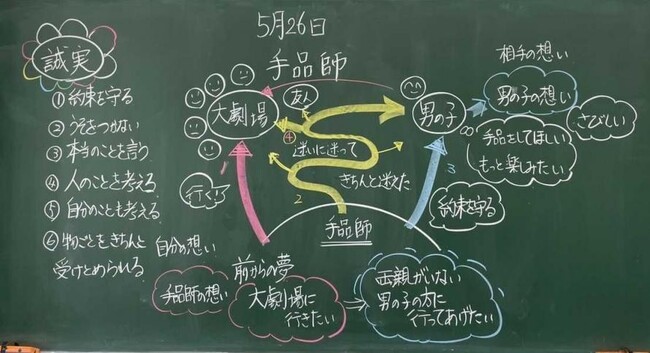 5月26日
手品師
誠実
①約束を守る
②うそをつかない
③本当のことを言う
④人のことを考える
⑤自分のことも考える
⑥物ごとをきちんと
受けとめられる
大劇場
友人
男の子
相手の想い
男の子の想い
さびしい
手品をしてほしい
もっと楽しみたい
迷いに迷って
きちんと迷えた
行く!
1
2
3
4
約束を守る
手品師
自分の想い
手品師の想い
前からの夢
大劇場に
行きたい
両親がいない
男の子の為に
行ってあげたい